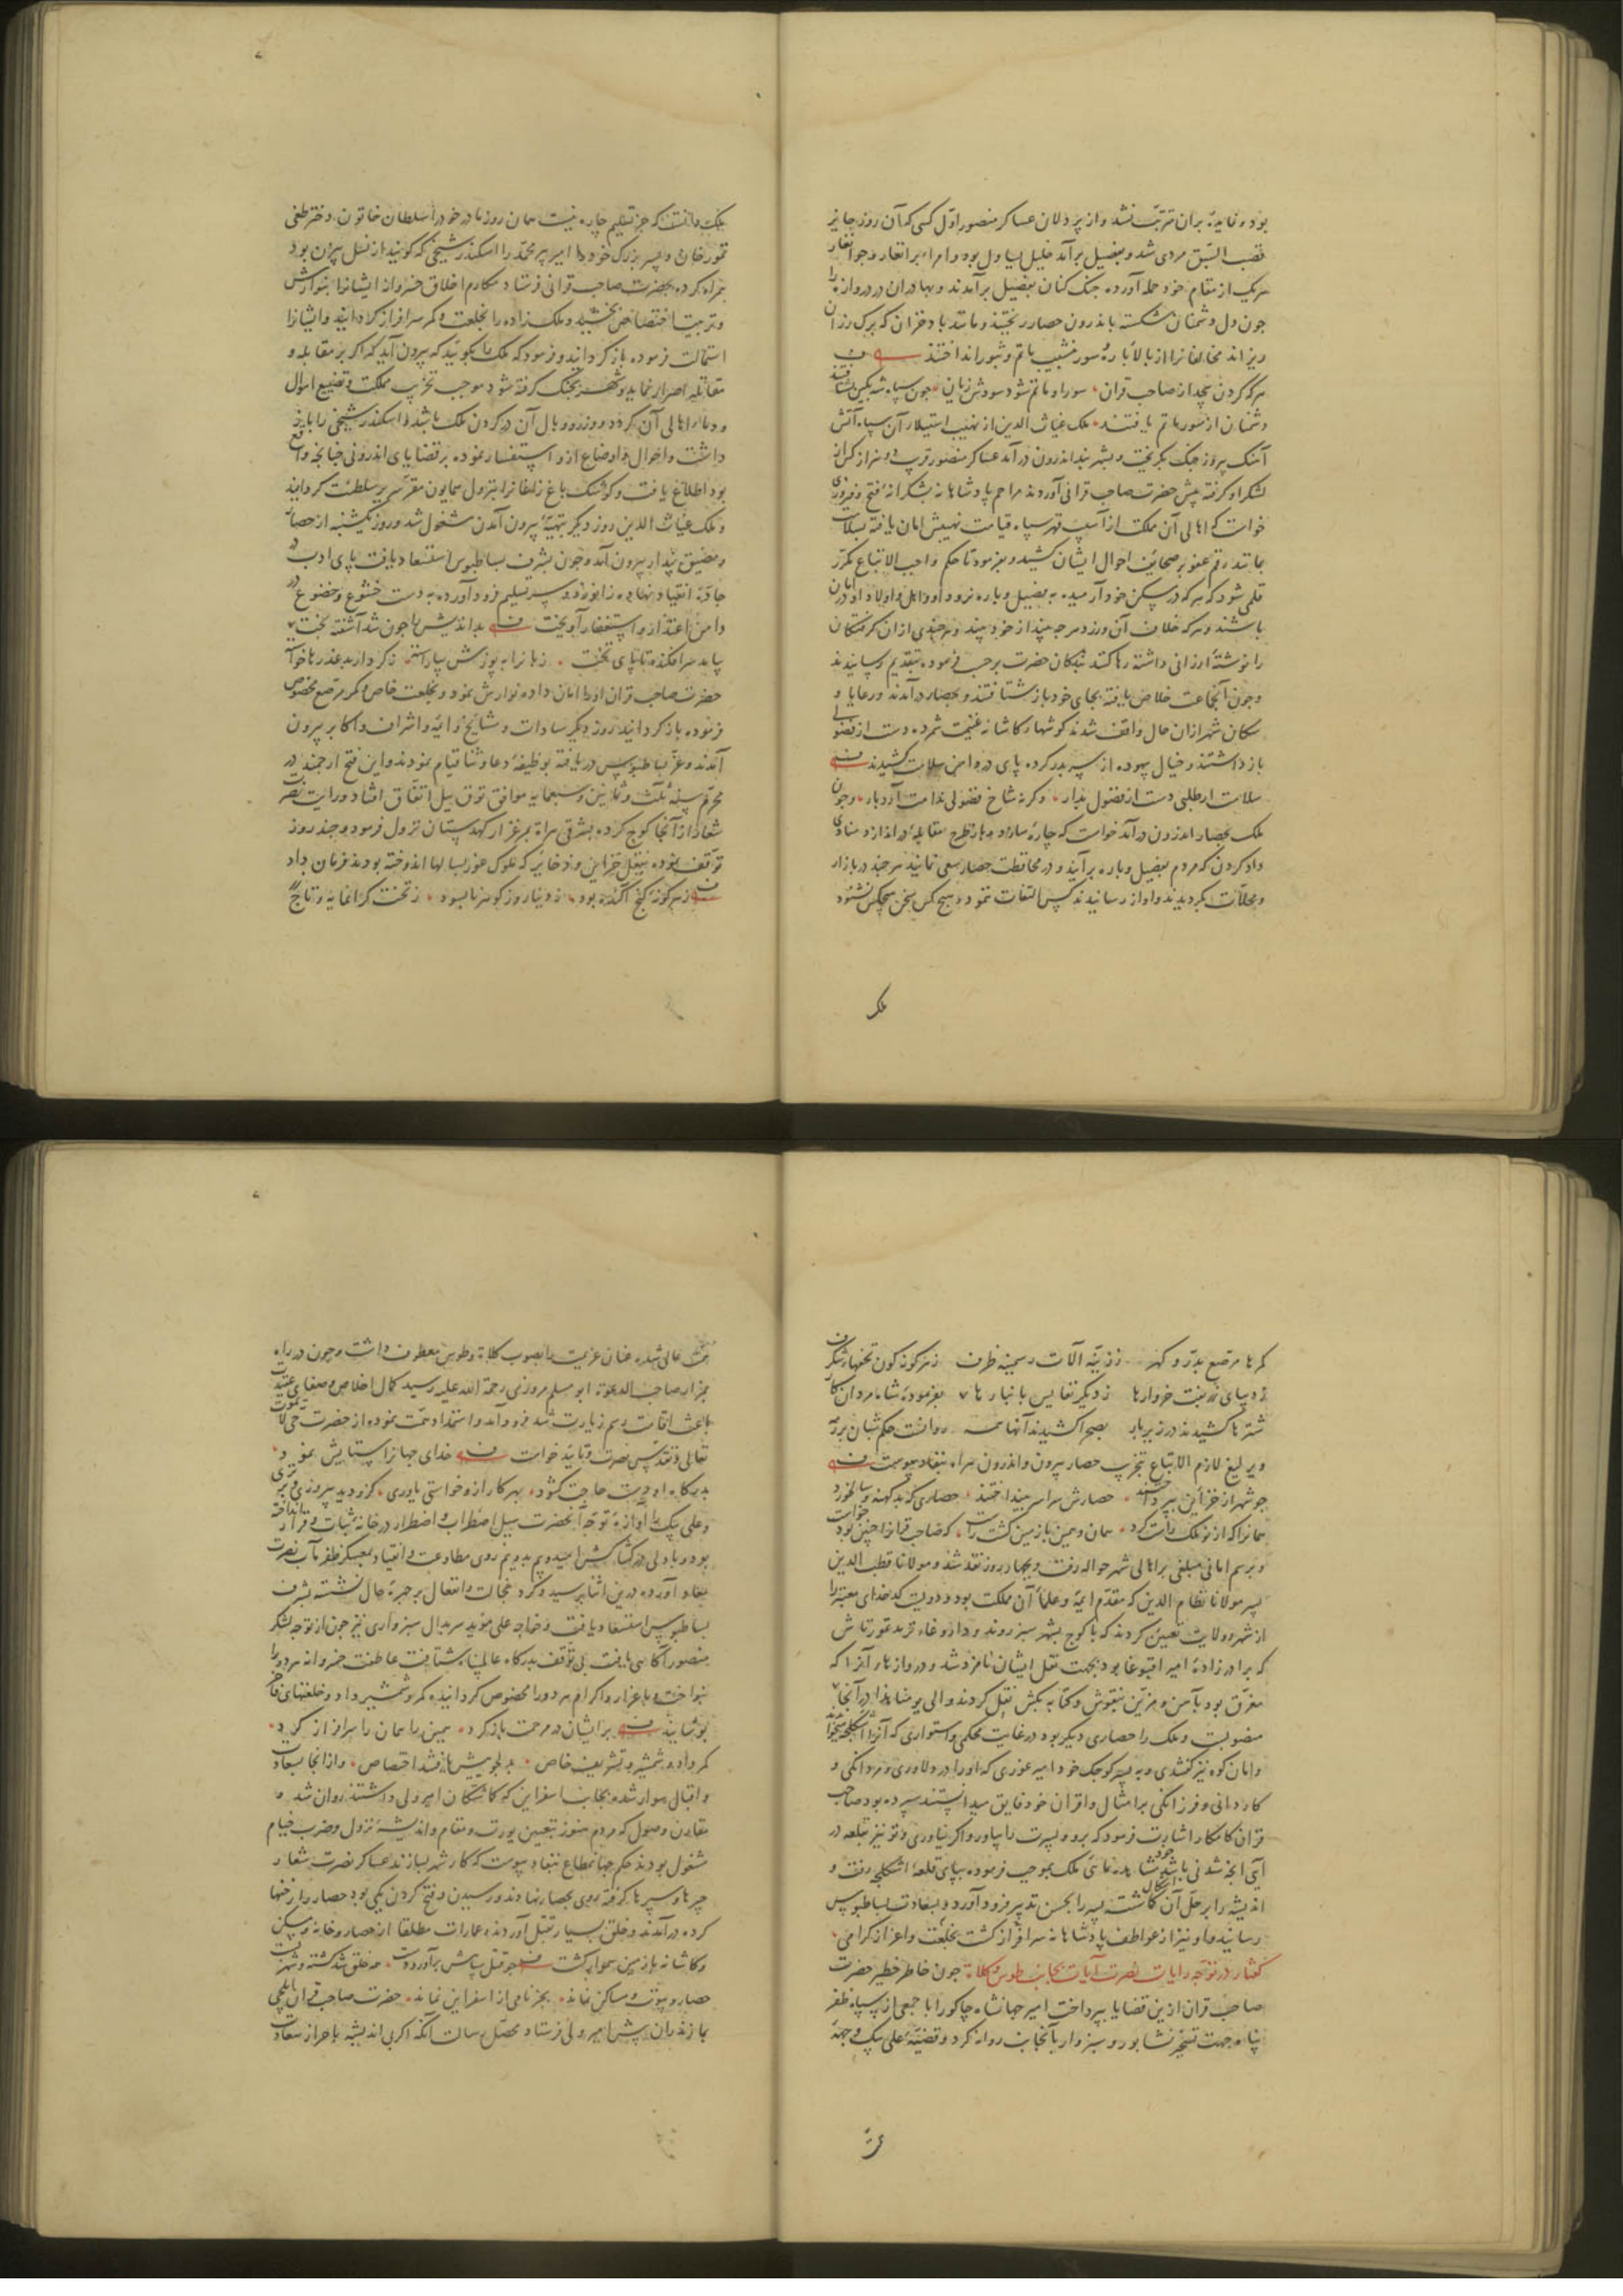 بوده فایدهٔ بران مترتب نشد و از پردلان عساکر منصور اوّل کسی که آن روز حایز
قصب السّبق مردی شد و بفصیل برآمد خلیل یساول بود و امراء برانغار و جوانغار
هریک از مقام خود حمله آورده جنک کنان بفصیل برآمدند و بهادران در دروازه را
چون دل دشمنان شکسته باندرون حصار ریختند و مانند باد خزان که برک رزان
ریزاند مخالفانرا از بالا بارهٔ سور بنشیب ماتم و شور انداختند
هرکه کردن پیچد از صاحب قران سور او ماتم شود سودش زیان چون سپاه شه بکین بشتافتند
دشمنان از سور ماتم یافتند ملک غیاث الدین از نهیب استیلاء آن سپاه آتش
آهنک پیروز جنک بکریخت و بشهربند اندرون درآمد عساکر منصور قریب دو هزار کس از
لشکر او کرفته پیش حضرت صاحب قرانی آوردند مراحم پادشاهانه بشکرانهٔ فتح و فیروزی
خواست که اهالی آن مملکت از آسیب قهر سپاه قیامت نهیبش امان یافته بسلامت
بمانند رقم عفو بر صحائف احوال ایشان کشید و بفرمود تا حکم واجب الاتباع بتکرّر
قلمی شود که هرکه در مسکن خود آرمیده به فصیل و باره نرود او و اهل و اولاد او در امان
باشند و هرکه خلاف آن ورزد هرچه بیند از خود بیند و هرچندی از ان کرفتکان
را نوشتهٔ ارزانی داشته رها کنند بندکان حضرت برحسب فرموده بتقدیم رسانیدند
و چون آنجماعت خلاص یافته بجای خود باز شتافتند و بحصار درآمدند و رعایا و
سکان شهر از ان حال واقف شدند کوشها و کاشانه غنیمت شمرده دست از فضولی
باز داشتند و خیال بیهوده از سر بدر کرده پای در دامن سلامت کشیدند
سلامت ار طلبی دست از فضول بدار وکرنه شاخ فضولی ندامت آرد بار و چون
ملک بحصار اندرون درآمد خواست که چاره سازد و باز طرح مقابله در اندازد منادی
داد کردن که مردم بفصیل و باره برآیند و در محافظت حصار سعی نمایند هرچند در بازار
و محلّات بکردیدند و آواز رسانیدند کس التفات ننمود و هیچ کس سخن هیچکس نشنود
ملک
ملک دانست که جز تسلیم چاره نیست همان روز مادر خود را سلطان خاتون دختر طغی
تمور خان و پسر بزرک خود را امیر پیر محمد را با اسکندر شیخی که کویند از نسل بیژن بود
همراه کرده بحضرت صاحب قرانی فرستاد مکارم اخلاق خسروانه ایشانرا بنوازش
و تربیت اختصاص بخشید و ملک زاده را بخلعت و کمر سرافراز کردانید و ایشانرا
استمالت فرموده باز کردانید و فرمود که ملک را بکویید که بیرون آید که اکر بر مقابله و
مقاتله اصرار نماید و شهر بجنک کرفته شود موجب تخریب مملکت و تضییع اموال
و دماء اهالی آن کردد و وزر و وبال آن در کردن ملک باشد و اسکندر شیخی را باز
داشت و احوال و اوضاع ازو استفسار نموده بر قضایای اندرونی چنانچه واقع
بود اطّلاع یافت و کوشک باغ زاغانرا بنزول همایون مقرّ سریر سلطنت کردانید
و ملک غیاث الدین روز دیکر بتهیّهٔ بیرون آمدن مشغول شد و روز یکشنبه از حصار
و مضیق پندار بیرون آمد و چون بشرف بساط بوس استسعاد یافت پای ادب در
جادّهٔ انقیاد نهاده زانو زد و سر تسلیم فرود آورده به دست خشوع و خضوع در
دامن اعتذار و استغفار آویخت بداندیش را چون شد آشفته بخت
بیامد سرافکنده تا پای تخت زبانرا به پوزش بیاراسته ز کردار بد عذرها خواسته
حضرت صاحب قران او را امان داده نوازش نمود و بخلعت خاص و کمر مرصّع مخصوص
فرموده باز کردانید روز دیکر سادات و مشایخ و ائمّه و اشراف و اکابر بیرون
آمدند و عزّ بساط بوس دریافته بوظیفهٔ دعا و ثنا قیام نمودند و این فتح ارجمند در
محرّم سنهٔ ثلث و ثمانین و سبعمایه موافق توق ییل اتفاق افتاد و رایت نصرت
شعار از آنجا کوچ کرده بشرقی هراة بمرغزار کهدستان نزول فرمود و چند روز
توقف نموده بنقل خزاین و ذخایر که ملوک غور بسالها اندوخته بودند فرمان داد
ز هر کوزه کنج آکنده بود ز دینار و ز کوهر نابسود ز تخت کرانمایه و تاج
کمرها مرصّع بدرّ و کهر ز زرّینه آلات و سیمینه ظرف ز هر کونه کون تحفهاء شکرف
ز دیبای زربفت خروارها ز دیکر نفایس بانبارها بفرمودهٔ شاه مردان کار
شترها کشیدند در زیر بار بصحرا کشیدند آنها همه روانست حکم شبان بر رمه
و یرلیغ لازم الاتباع بتخریب حصار بیرون و اندرون هراه بنفاذ پیوست
چو شهر از خزاین بپرداختند حصارش سراسر بینداختند حصاری که بد کهنه و سالخورد
همانرا که از نو ملک راست کرد همان و همین با زمین کشت راست که صاحب قرانرا چنین بود خواست
و برسم امانی مبلغی بر اهالی شهر حواله رفت و بچهار روز نقد شد و مولانا قطب الدین
پسر مولانا نظام الدین که مقدّم ایمّه و علماء آن مملکت بود و دویست کدخدای معتبر را
از شهر و ولایت تعیین کردند که با کوچ بشهر سبز روند و داروغاء ترمد تمورتاش
که برادرزادهٔ امیر اقبوغا بود بجهت نقل ایشان نامزد شد و دروازهاء آنرا که
مغرّق بود بآهن و مزیّن بنقوش و کتابه بکش نقل کردند و الی یومنا هذا در آنجا
منصوبست و ملک را حصاری دیکر بود در غایت محکمی و استواری که آنرا اشکلجه میخوانند
و امان کوه نیز کفتندی و به پسر کوچک خود امیر غوری که او را در دلاوری و مردانکی و
کاردانی و فرزانکی بر امثال و اقران خود فایق میدانستند سپرده بود صاحب
قران کامکار اشارت فرمود که برو و پسرت را بیاور و اکر نیاوری و تو نیز بقلعه در
آیی آنچه شدنی باشد خود مشاهده نمائی ملک بموجب فرموده بپای قلعهٔ اشکلجه رفت و
اندیشه را بر حلّ آن اشکال کاشته پسر را بحسن تدبیر فرود آورد و بسعادت بساط بوس
رسانید و او نیز از عواطف پادشاهانه سرافراز کشت بخلعت و اعزاز کرامی
کفتار در توجّه رایات نصرت آیات بجانب طوس و کلات چون خاطر خطیر حضرت
صاحب قران ازین قضایا بپرداخت امیر جهانشاه جاکو را با جمعی از سپاه ظفر
پناه جهت تسخیر نشابور و سبزوار بآنجانب روانه کرد و قضیّهٔ علی بیک وجههٔ
همّت عالی شده عنان عزیمت را بصوب کلات و طوس معطوف داشت و چون در راه
بمزار صاحب الدعوة ابو مسلم مروزی رحمة الله علیه رسید کمال اخلاص و صفای عقیدت
باعث اقامت رسم زیارت شد فرود آمد و استمداد همّت نموده از حضرت حی لایموت
تعالی و تقدّس نصرت و تایید خواست خدای جهانرا ستایش نمود
بدرکاه او دست حاجت کشود بهر کار ازو خواستی یاوری کزو دید پیروزی و برتری
و علی بیک را آوازهٔ توجه آنحضرت سیل اضطراب و اضطرار در خانه ثبات و قرار انداخته
بود و با دلی در کشاکش امید و بیم بدو نیم روی مطاوعت و انقیاد بمعسکر ظفر مآب نصرت
معاد آورده درین اثنا برسید و کرد خجالت و انفعال بر چهرهٔ حال نشسته بشرف
بساط بوس استسعاد یافت و خواجه علی مؤید سربدال سبزواری نیز چون از توجه لشکر
منصور آکاهی یافت بی توقف بدرکاه عالمپناه شتافت عاطفت خسروانه هر دو را
بنواخت و باعزاز و اکرام هر دو را مخصوص کردانیده کمر و شمشیر داد و خلعتهای فاخر
پوشانید بر ایشان در مرحمت باز کرد بمین را بمان را سرافراز کرد
کمر داد و شمشیر و تشریف خاص بدلجوییش یافتند اختصاص و از آنجا بسعادت
و اقبال سوار شده بجانب اسفراین که کماشتکان امیر ولی داشتند روان شد و
مقارن وصول که مردم هنوز بتعیین یورت و مقام و اندیشهٔ نزول و ضرب خیام
مشغول بودند حکم جهانمطاع بنفاذ پیوست که کار شهر بسازند عساکر نصرت شعار
چپرها و سپرها کرفته روی بحصار نهادند و رسیدن و فتح کردن یکی بود حصار را رخنها
کرده درآمدند و خلق بسیار بقتل آوردند و عمارات مطلقا از حصار و خانه و مسکن
و کاشانه با زمین هموار کشت چو قتل سپاهش برآورد دست همه خلق شد کشته و شهر پست
حصار و بیوت و مساکن نماند بجز نامی از اسفراین نماند حضرت صاحب قران ایلچی
بمازندران پیش امیر ولی فرستاد محصّل رسالت آنکه اکر بی اندیشه باحراز سعادت